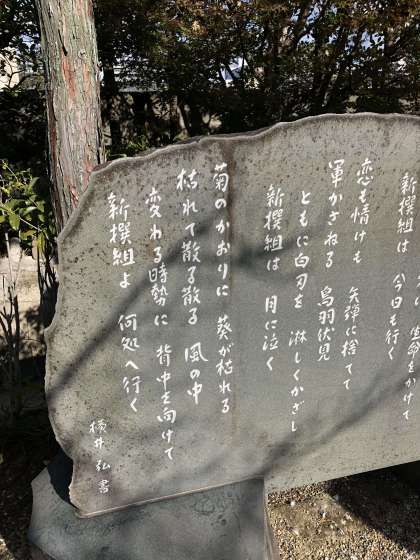 生命をかけて
新撰組は 今日も行く
恋も情けも 矢弾に捨てて
軍かさねる 鳥羽伏見
ともに白刃を 淋しくかざし
新撰組は 月に泣く
菊のかおりに 葵が枯れる
枯れて散る散る 風の中
変わる時勢に 背中を向けて
新撰組よ 何処へ行く
横井 弘 書